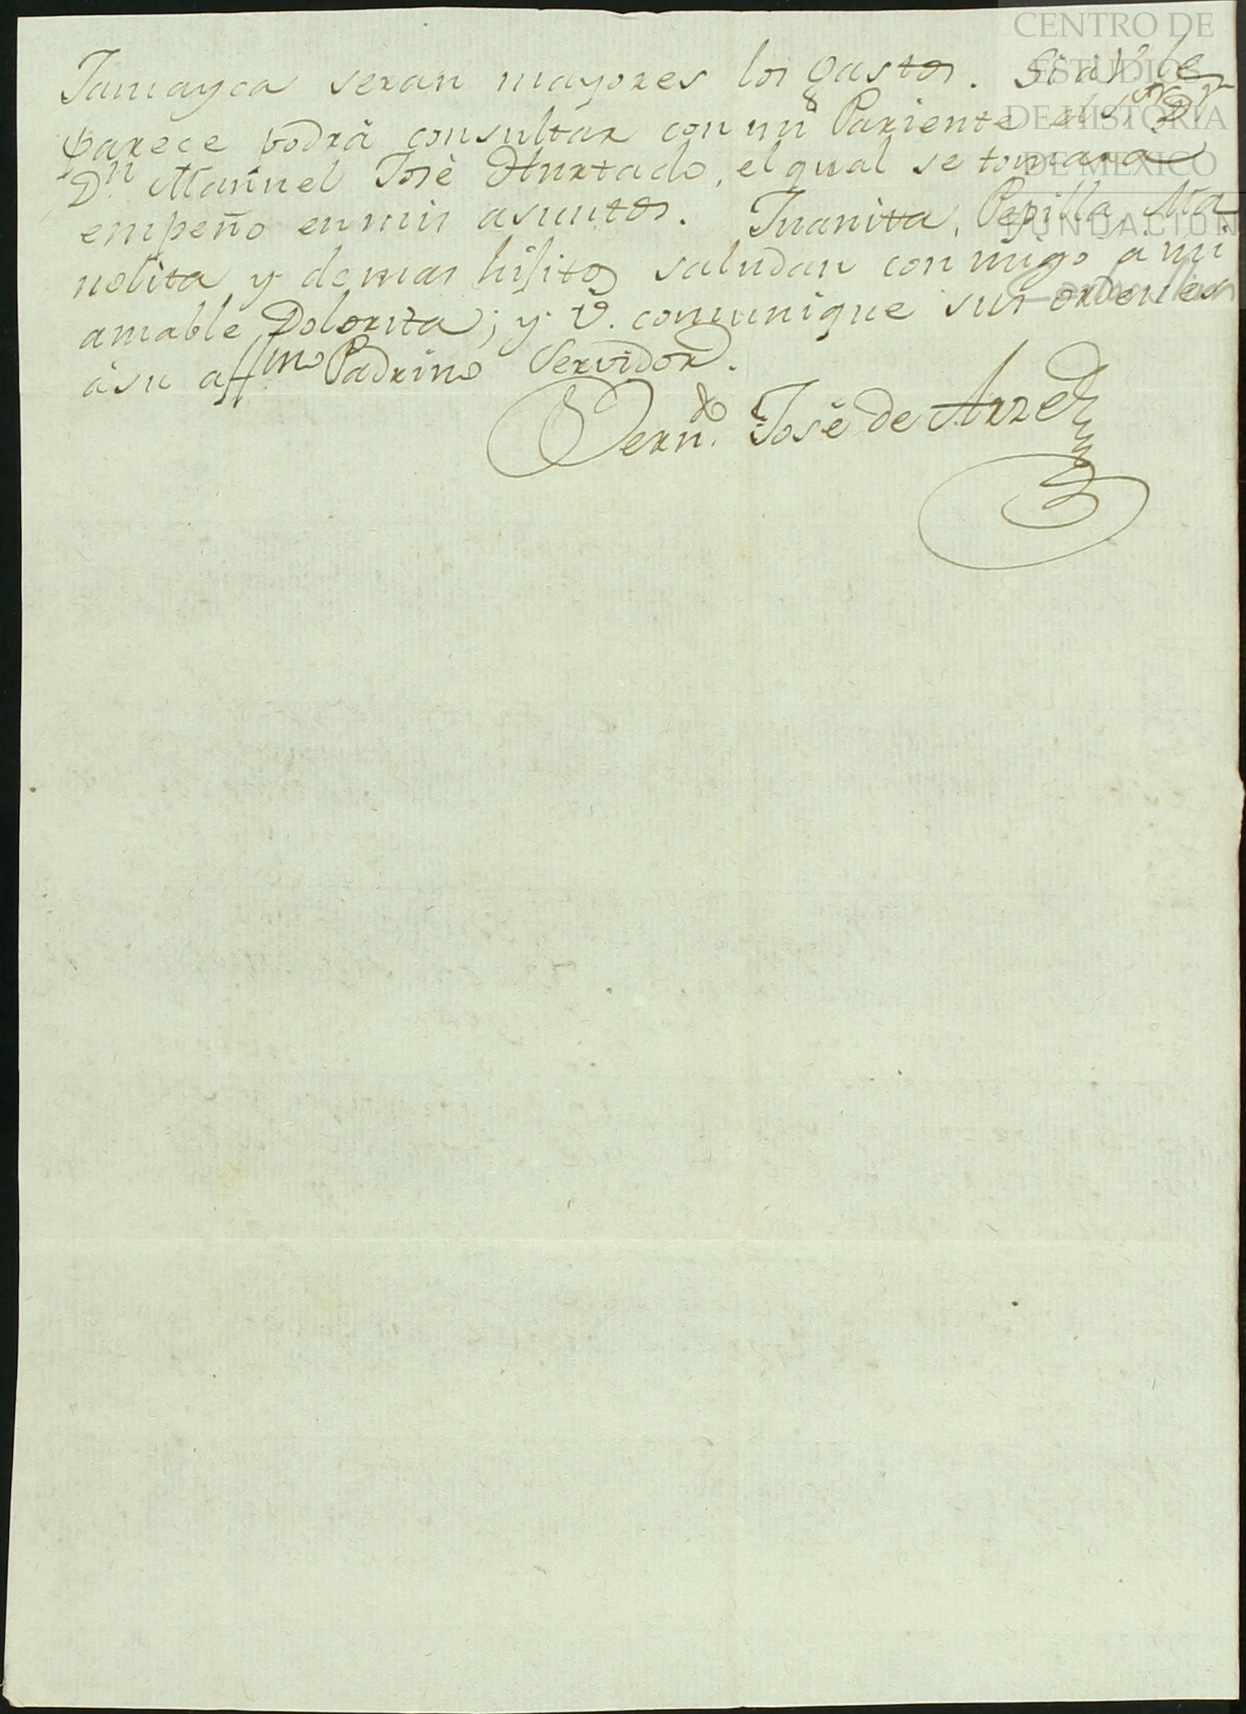 CENTRO DE
ESTUDIOS
DE HISTORIA
DE MEXICO
FUNDACION
Jamayca seran mayores los gastos. Si a V. le
parece podrà consultar con mi Pariente el Sor. Dr.
Dn. Manuel Josè Hurtado, el qual se tomara
empeño en mis asuntos. Juanita, Pepilla, Ma
nolita y demas hijitos saludan con migo a mi
amable Dolorita; y V. comunique sus ordenes
àsu affmo Padrino Servidor.
Berndo. Josè de Arze